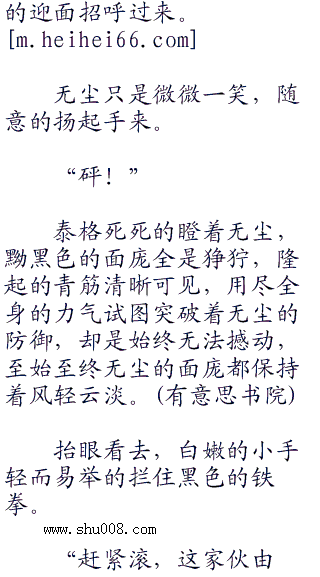 的迎面招呼过来。
[m.heihei66.com]
无尘只是微微一笑，随
意的扬起手来。
“砰！”
泰格死死的瞪着无尘，
黝黑色的面庞全是狰狞，隆
起的青筋清晰可见，用尽全
身的力气试图突破着无尘的
防御，却是始终无法撼动，
至始至终无尘的面庞都保持
着风轻云淡。(有意思书院)
抬眼看去，白嫩的小手
轻而易举的拦住黑色的铁
拳。
www.shu008.com
“赶紧滚，这家伙由